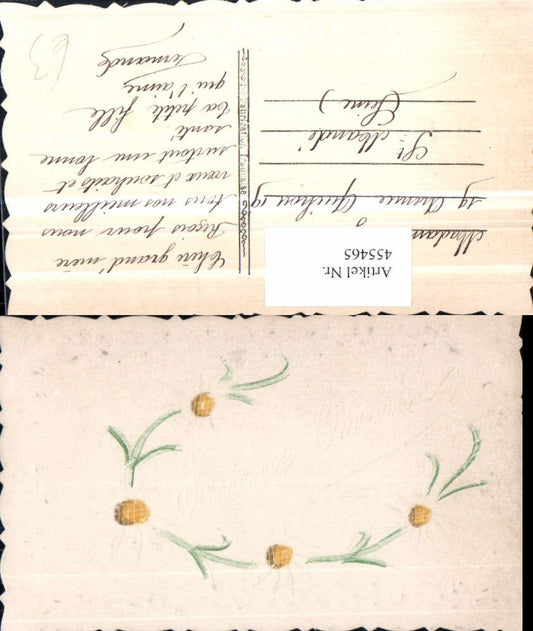 Chère grand'mère
Reçois pour nous
tous nos meilleurs
vœux et souhaits et
surtout une bonne
santé.
Ta petite fille
qui t'aime
Fernande
Madame
19 Avenue Quihou 19
St Mandé
(Seine)
Artikel Nr.
455465
63